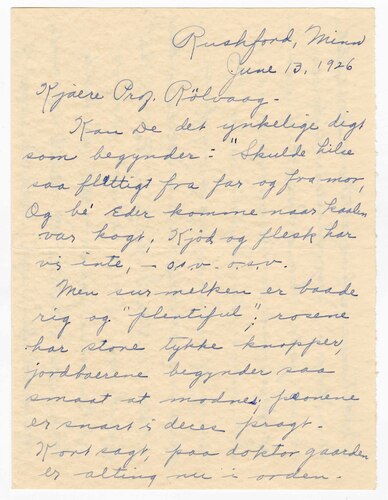 Rushford, Minn
June 13, 1926
Kjaere Prof. Rölvaag -
Kan De det ynkelige digt
som begynder: "Skulde hilse
saa flittigt fra far og fra mor,
Og be' Eder komme naar kaalen
var kogt; Kjöd og flesk har
vi inte, - o.s.v. o.s.v.
Men sur melken er baade
rig og "plentiful"; rosene
har store tykke knopper,
jordbaerene begynder saa
smaat at modnes, peonene
er snart i deres pragt.
Kort sagt, paa doktor gaarden
er alting nu i orden.